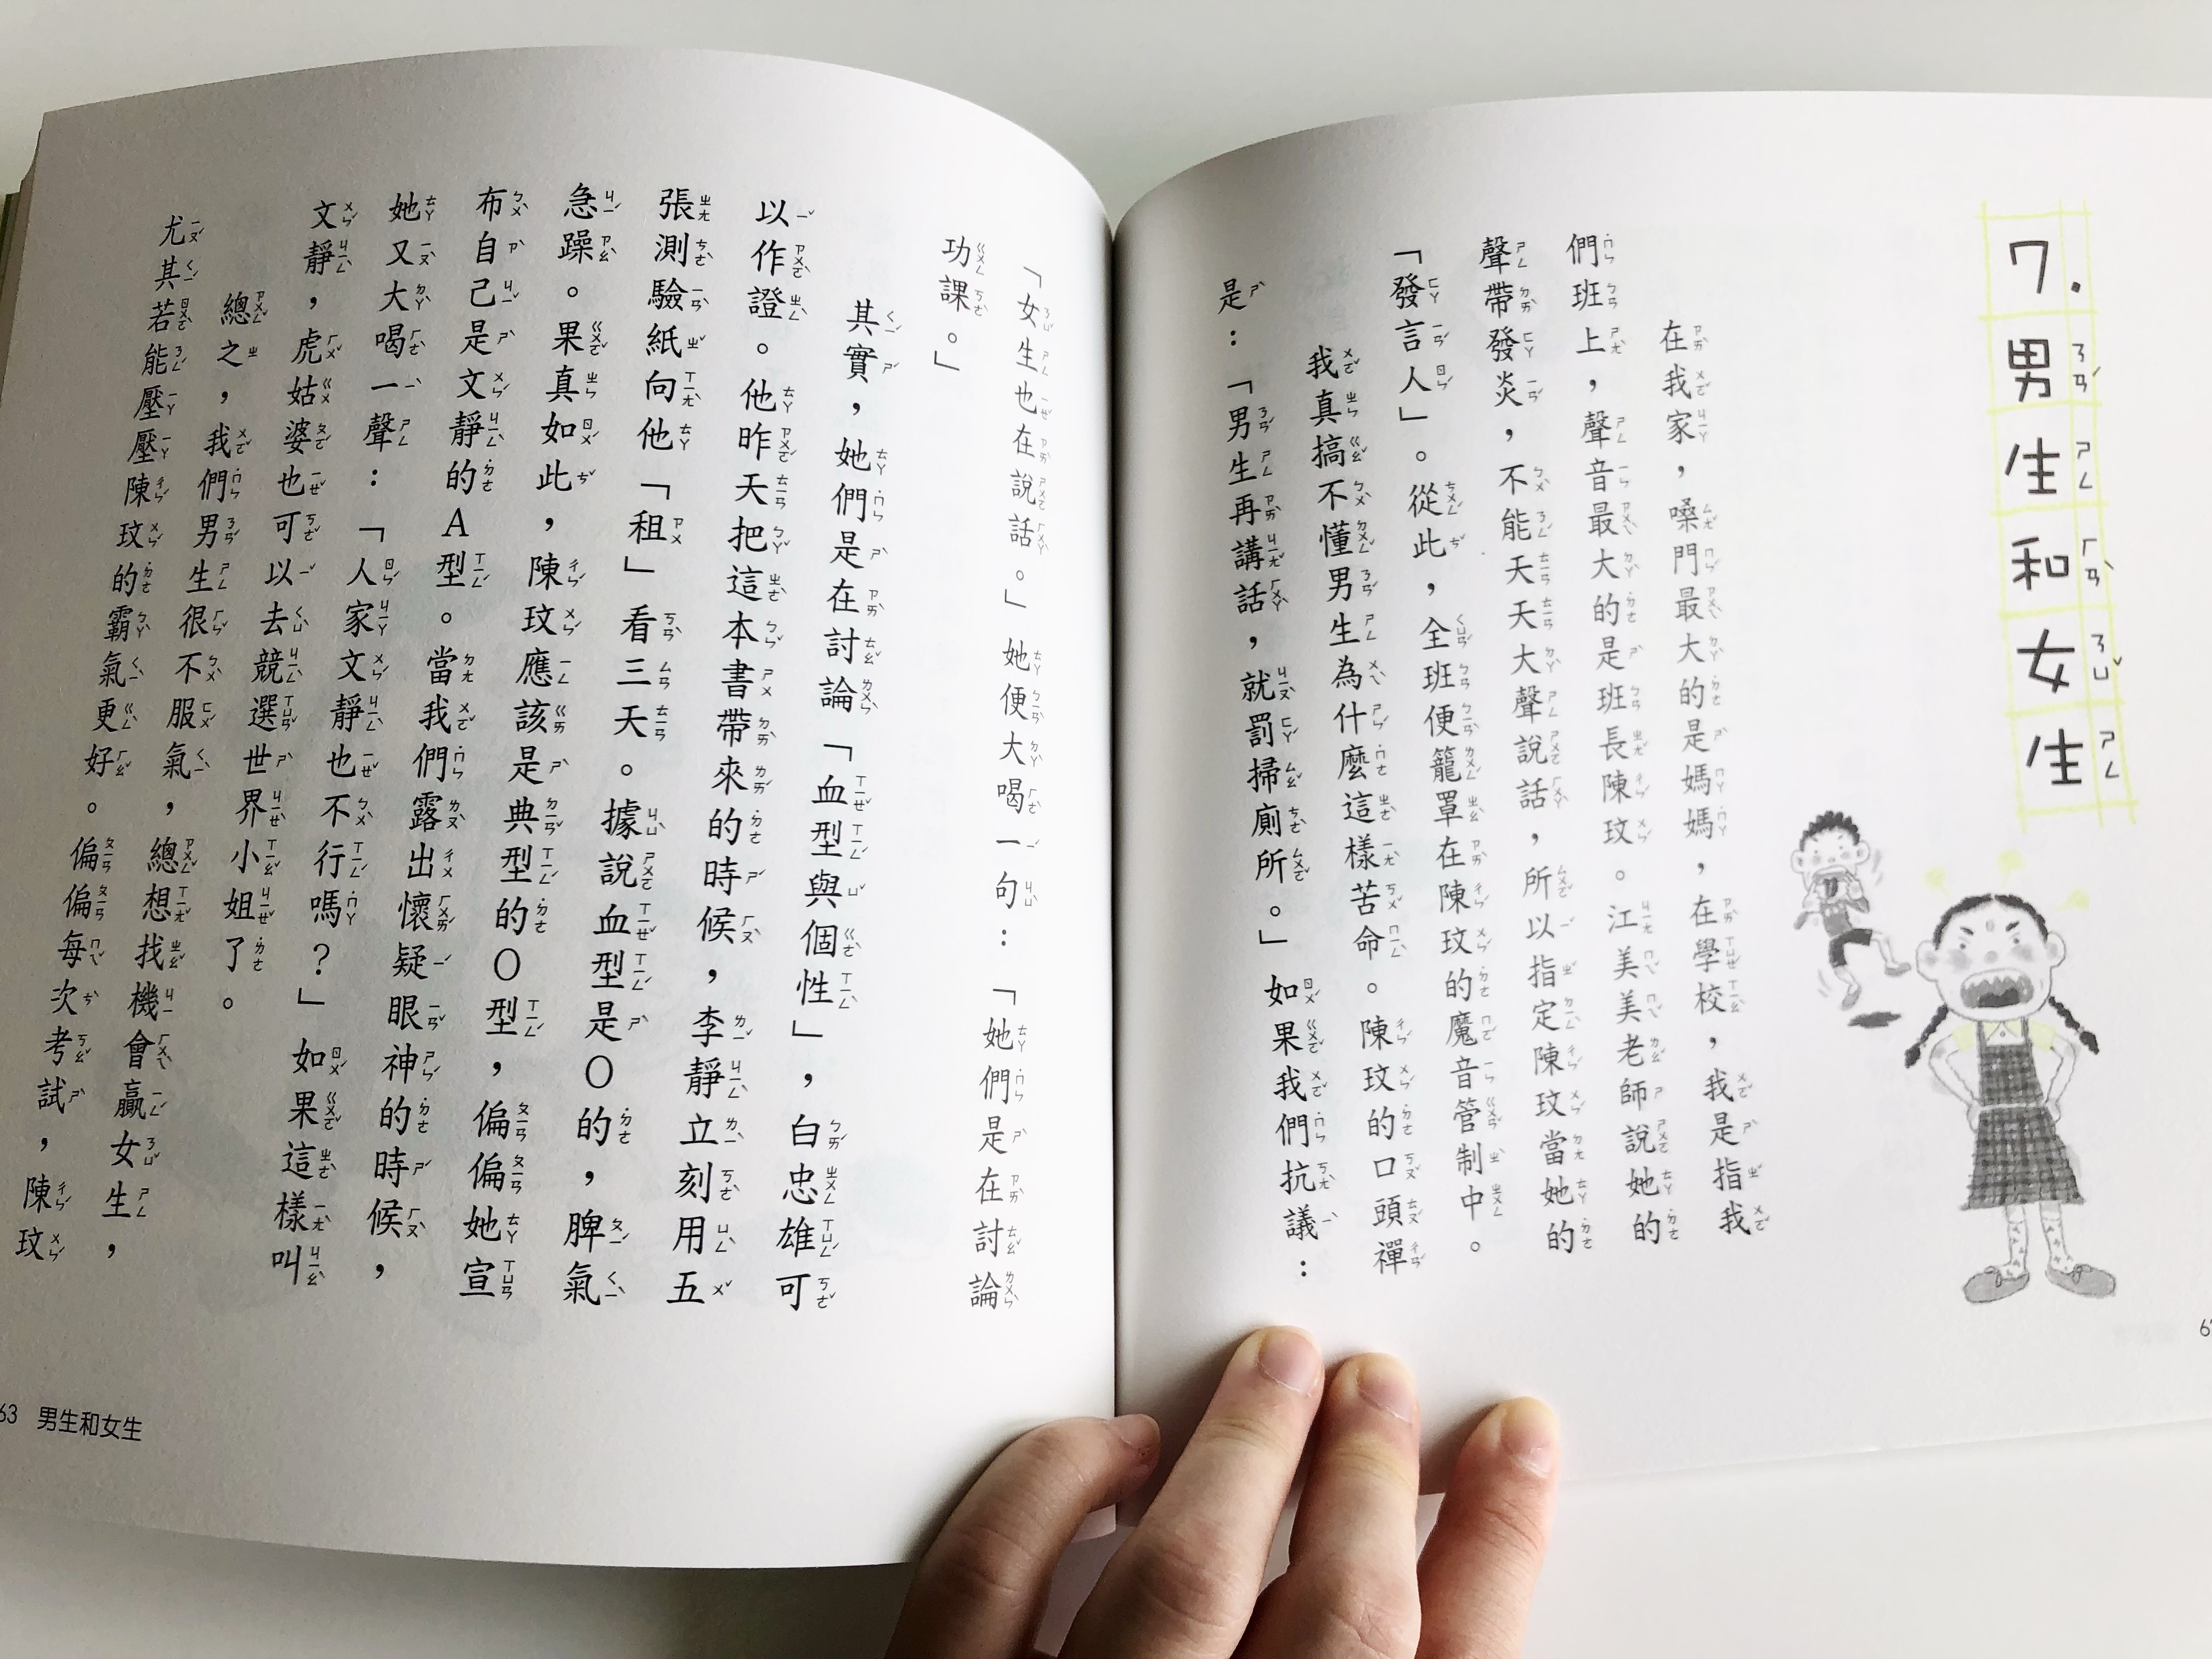 7.男生和女生
在我家，嗓門最大的是媽媽，在學校，我是指我
們班上，聲音最大的是班長陳玟。江美美老師說她的
聲帶發炎，不能天天大聲說話，所以指定陳玟當她的
「發言人」。從此，全班便籠罩在陳玟的魔音管制中。
我真搞不懂男生為什麼這樣苦命。陳玟的口頭禪
是：「男生再講話，就罰掃廁所。」如果我們抗議：
「女生也在說話。」她便大喝一句：「她們是在討論
功課。」
其實，她們是在討論「血型與個性」，白忠雄可
以作證。他昨天把這本書帶來的時候，李靜立刻用五
張測驗紙向他「租」看三天。據說血型是O的，脾氣
急躁。果真如此，陳玟應該是典型的O型，偏偏她宣
布自己是文靜的A型。當我們露出懷疑眼神的時候，
她又大喝一聲：「人家文靜也不行嗎？」如果這樣叫
文靜，虎姑婆也可以去競選世界小姐了。
總之，我們男生很不服氣，總想找機會贏女生，
尤其若能壓壓陳玟的霸氣更好。偏偏每次考試，陳玟
63 男生和女生